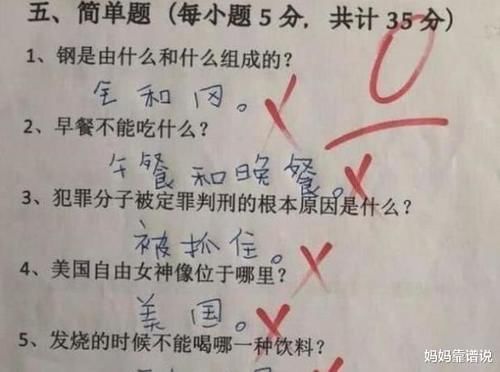 五、简单题（每小题5分，共计35分）
0
1、钢是由什么和什么组成的？
全和冈。
2、早餐不能吃什么？
午餐和晚餐。
3、犯罪分子被定罪判刑的根本原因是什么？
被抓住。
4、美国自由女神像位于哪里？
美国。
5、发烧的时候不能喝哪一种饮料？
妈妈靠谱说